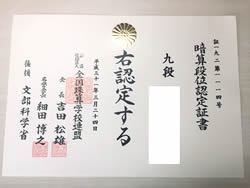 証一九二第一一一四号
暗算段位認定証書
九段
右認定する
平成三十一年三月二十四日
全国珠算学校連盟
会長 吉田松雄
名誉会長 細田博之
後援 文部科学省